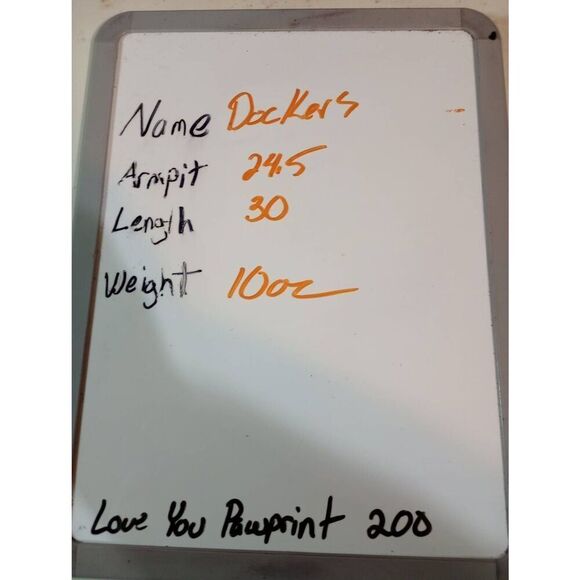 Name Dockers
Armpit 24.5
Length 30
Weight 10oz
Love You Pawprint 200